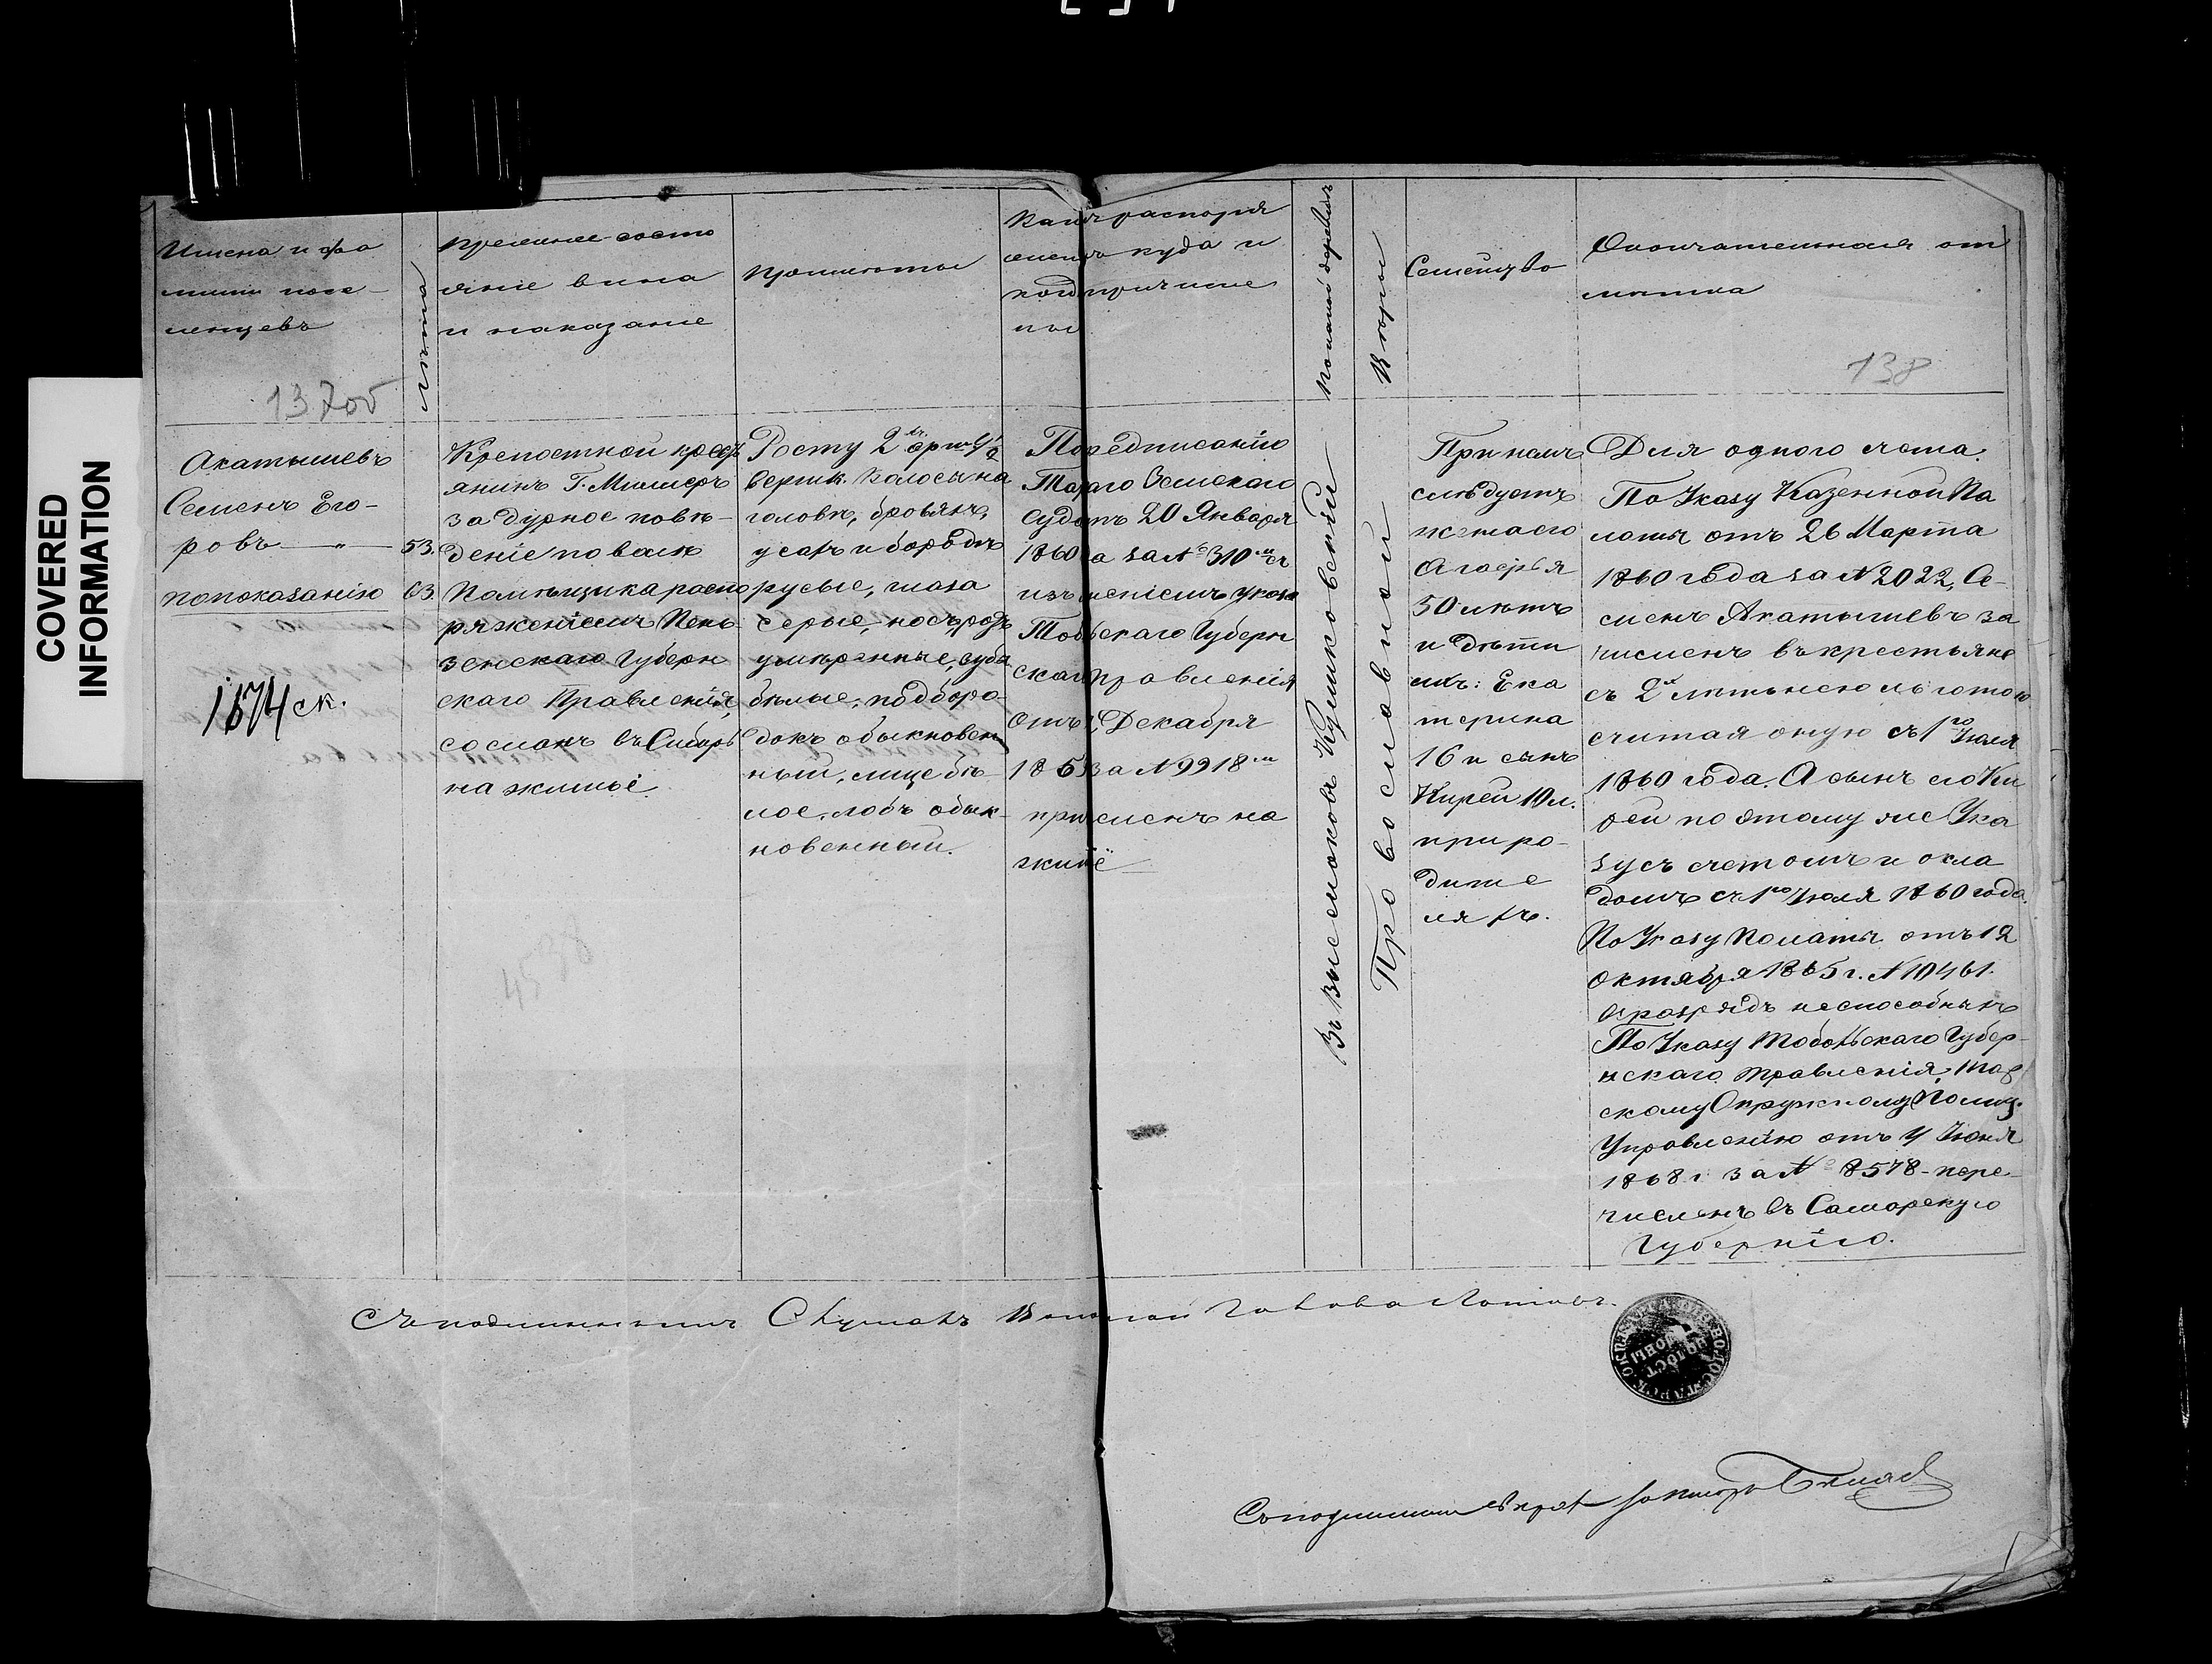 COVERED
INFORMATION
Имена и фа
милии посе-
ленцевъ
137об
Лѣта
Прежнее состо
яніе вина
и наказаніе
Примѣты
распоря
куда и
причисле
ны
деревнѣ
Вѣры
Семейство
Окончательная от
мѣтка
138
Акатышевъ
Семенъ Его-
ровъ — „ —
по показанію
53.
63.
1674 ск.
Крепостной крест
янинъ Г. Миллеръ
за дурное пове-
деніе по воли
Помѣщика распо
ряженіемъ Пен-
зенскаго Губерн
скаго Правленія,
сосланъ въ Сибирь
на житьё.
Росту 2 арш 4½
вершк. Волосы на
головѣ, бровяхъ,
усахъ и бородѣ
русые, глаза
серые, носъ, ротъ
умѣренные, зубы
бѣлые, подборо-
докъ обыкновен
ный, лице бѣ-
лое, лобъ обык-
новенный.
По предписанію
Тарскаго Земскаго
Суда отъ 20 Января
1860 за № 310
изъ указа
Тобольскаго Губерн
скаго правленія
отъ Декабря
185 за № 9918
причисленъ на
житьё
Въ Выселокъ
Православной
При немъ
слѣдуетъ
жена его
Агафья
50 лѣтъ
и дѣти
ихъ: Ека
терина
16 и сынъ
Кирей 10 л.
при ро-
дите
ляхъ.
Для одного счета.
По Указу Казенной Па
латы отъ 26 Марта
1860 года за № 2022, Се-
менъ Акатышевъ за
численъ въ крестьяне
съ 2х лѣтнею льготою
считая оную съ 1го Іюля
1860 года. А сынъ его Ки
рей по этому же Ука
зу съ счетомъ и окла
домъ съ 1го Іюля 1860 года.
По Указу Палаты отъ 12
Октября 1865 г. № 10461.
въ разрядъ неспособныхъ
По Указу Тобольскаго Губер-
нскаго правленія, Тар
скому Окружному Полиц.
Управленію отъ 4 Іюня
1868 г. за № 8578 - пере-
численъ въ Самарскую
Губернію.
4538
Съ подлиннымъ Волостной Голова
Съ подлиннымъ